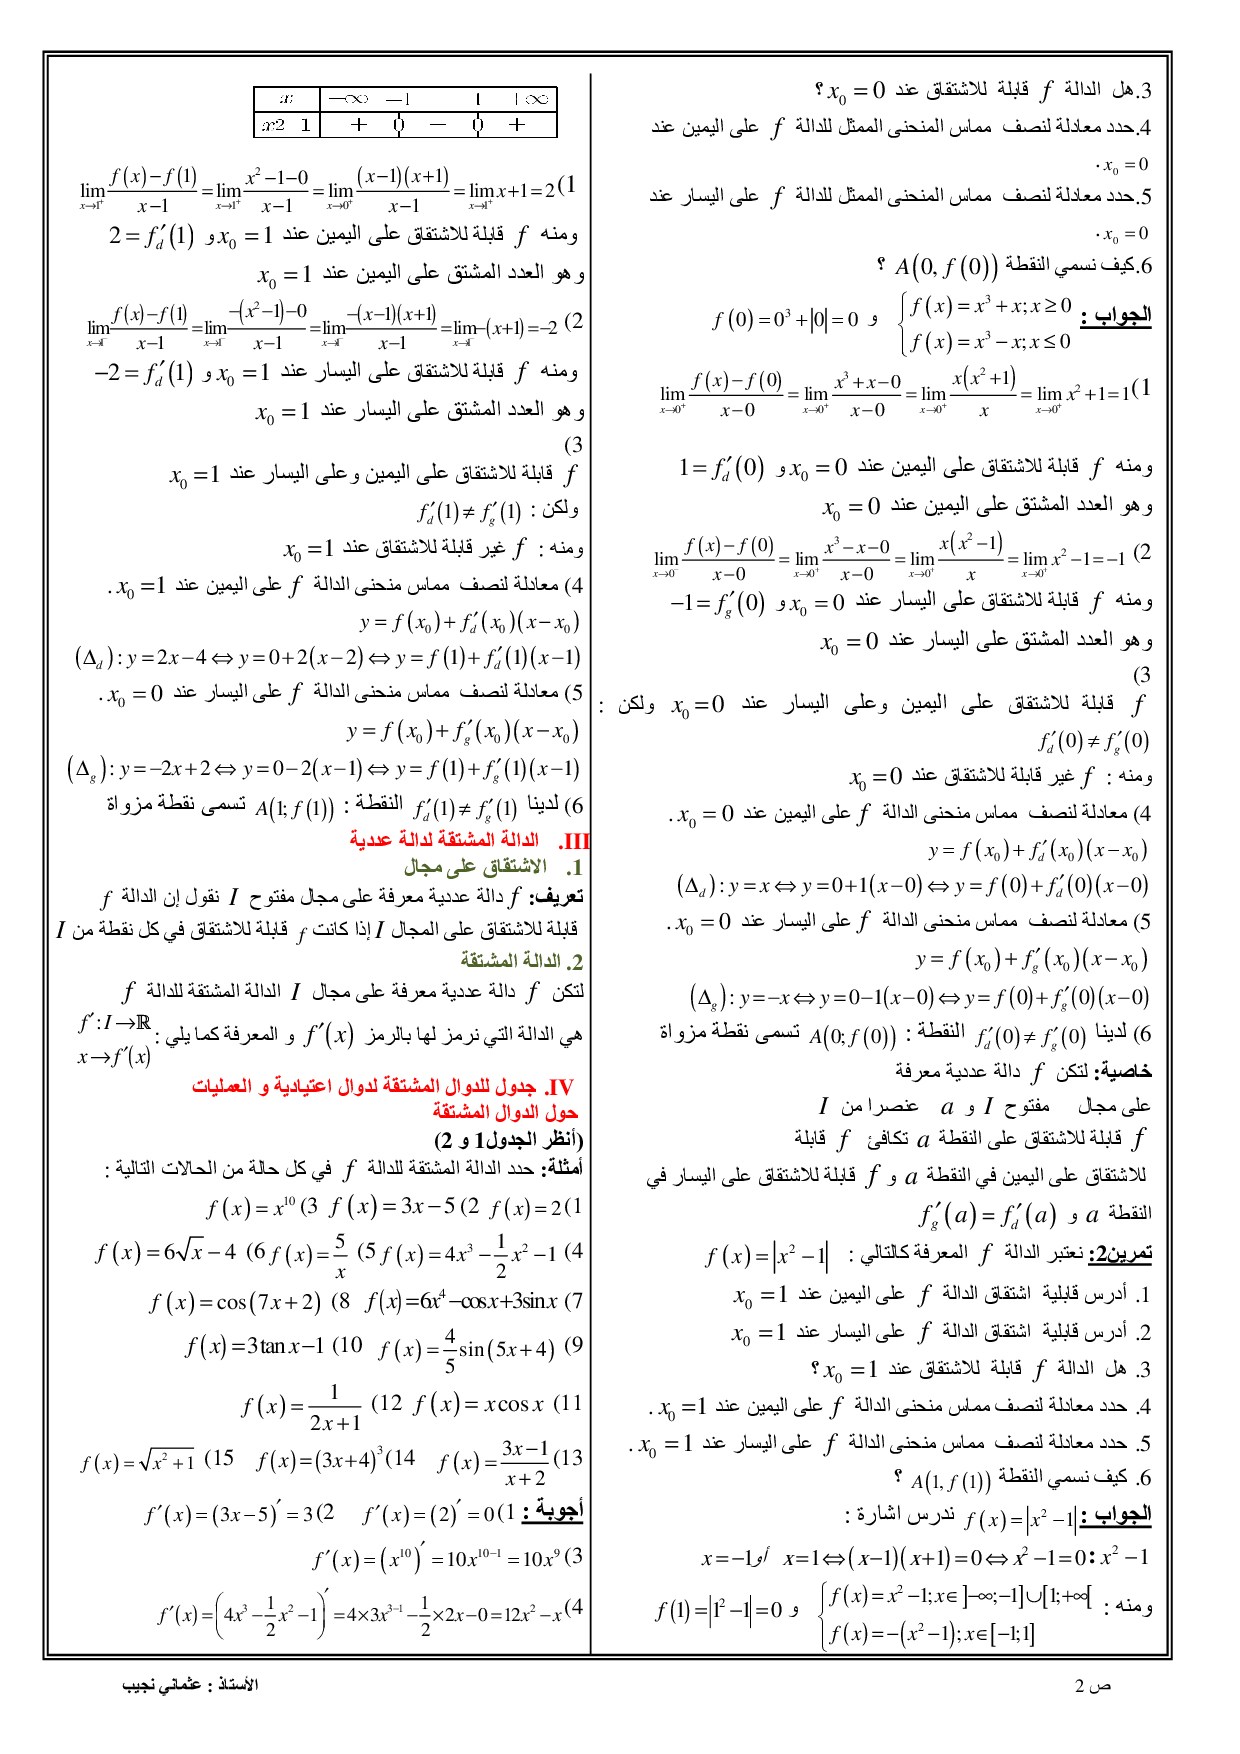 3.هل الدالة f قابلة للاشتقاق عند x₀ = 0 ؟
4.حدد معادلة لنصف مماس المنحنى الممثل للدالة f على اليمين عند
x₀ = 0 .
5.حدد معادلة لنصف مماس المنحنى الممثل للدالة f على اليسار عند
x₀ = 0 .
6.كيف نسمي النقطة A(0, f(0)) ؟
الجواب : { f(x) = x³ + x; x ≥ 0 ; f(x) = x³ − x; x ≤ 0 و f(0) = 0³ + |0| = 0
1) lim_{x→0⁺} (f(x) − f(0))/(x − 0) = lim_{x→0⁺} (x³ + x − 0)/(x − 0) = lim_{x→0⁺} x(x² + 1)/x = lim_{x→0⁺} x² + 1 = 1
ومنه f قابلة للاشتقاق على اليمين عند x₀ = 0 و 1 = f′_d(0)
وهو العدد المشتق على اليمين عند x₀ = 0
2) lim_{x→0⁻} (f(x) − f(0))/(x − 0) = lim_{x→0⁺} (x³ − x − 0)/(x − 0) = lim_{x→0⁺} x(x² − 1)/x = lim_{x→0⁺} x² − 1 = −1
ومنه f قابلة للاشتقاق على اليسار عند x₀ = 0 و −1 = f′_g(0)
وهو العدد المشتق على اليسار عند x₀ = 0
3)
f قابلة للاشتقاق على اليمين وعلى اليسار عند x₀ = 0 ولكن :
f′_d(0) ≠ f′_g(0)
ومنه : f غير قابلة للاشتقاق عند x₀ = 0
4) معادلة لنصف مماس منحنى الدالة f على اليمين عند x₀ = 0 .
y = f(x₀) + f′_d(x₀)(x − x₀)
(Δ_d) : y = x ⇔ y = 0 + 1(x − 0) ⇔ y = f(0) + f′_d(0)(x − 0)
5) معادلة لنصف مماس منحنى الدالة f على اليسار عند x₀ = 0 .
y = f(x₀) + f′_g(x₀)(x − x₀)
(Δ_g) : y = −x ⇔ y = 0 − 1(x − 0) ⇔ y = f(0) + f′_g(0)(x − 0)
6) لدينا f′_d(0) ≠ f′_g(0) النقطة : A(0; f(0)) تسمى نقطة مزواة
خاصية: لتكن f دالة عددية معرفة
على مجال مفتوح I و a عنصرا من I
f قابلة للاشتقاق على النقطة a تكافئ f قابلة
للاشتقاق على اليمين في النقطة a و f قابلة للاشتقاق على اليسار في
النقطة a و f′_g(a) = f′_d(a)
تمرين2: نعتبر الدالة f المعرفة كالتالي : f(x) = |x² − 1|
1. أدرس قابلية اشتقاق الدالة f على اليمين عند x₀ = 1
2. أدرس قابلية اشتقاق الدالة f على اليسار عند x₀ = 1
3. هل الدالة f قابلة للاشتقاق عند x₀ = 1 ؟
4. حدد معادلة لنصف مماس منحنى الدالة f على اليمين عند x₀ = 1 .
5. حدد معادلة لنصف مماس منحنى الدالة f على اليسار عند x₀ = 1 .
6. كيف نسمي النقطة A(1, f(1)) ؟
الجواب : f(x) = |x² − 1| ندرس اشارة :
x² − 1 : x² − 1 = 0 ⇔ (x − 1)(x + 1) = 0 ⇔ x = 1 أو x = −1
ومنه : { f(x) = x² − 1; x ∈ ]−∞; −1] ∪ [1; +∞[ ; f(x) = −(x² − 1); x ∈ [−1;1] و f(1) = |1² − 1| = 0
x −∞ −1 1 +∞
x2 1 + 0 − 0 +
1) lim_{x→1⁺} (f(x) − f(1))/(x − 1) = lim_{x→1⁺} (x² − 1 − 0)/(x − 1) = lim_{x→0⁺} (x − 1)(x + 1)/(x − 1) = lim_{x→1⁺} x + 1 = 2
ومنه f قابلة للاشتقاق على اليمين عند x₀ = 1 و 2 = f′_d(1)
وهو العدد المشتق على اليمين عند x₀ = 1
2) lim_{x→1⁻} (f(x) − f(1))/(x − 1) = lim_{x→1⁻} (−(x² − 1) − 0)/(x − 1) = lim_{x→1⁻} −(x − 1)(x + 1)/(x − 1) = lim_{x→1⁻} −(x + 1) = −2
ومنه f قابلة للاشتقاق على اليسار عند x₀ = 1 و −2 = f′_d(1)
وهو العدد المشتق على اليسار عند x₀ = 1
3)
f قابلة للاشتقاق على اليمين وعلى اليسار عند x₀ = 1
ولكن : f′_d(1) ≠ f′_g(1)
ومنه : f غير قابلة للاشتقاق عند x₀ = 1
4) معادلة لنصف مماس منحنى الدالة f على اليمين عند x₀ = 1 .
y = f(x₀) + f′_d(x₀)(x − x₀)
(Δ_d) : y = 2x − 4 ⇔ y = 0 + 2(x − 2) ⇔ y = f(1) + f′_d(1)(x − 1)
5) معادلة لنصف مماس منحنى الدالة f على اليسار عند x₀ = 0 .
y = f(x₀) + f′_g(x₀)(x − x₀)
(Δ_g) : y = −2x + 2 ⇔ y = 0 − 2(x − 1) ⇔ y = f(1) + f′_g(1)(x − 1)
6) لدينا f′_d(1) ≠ f′_g(1) النقطة : A(1; f(1)) تسمى نقطة مزواة
III. الدالة المشتقة لدالة عددية
1. الاشتقاق على مجال
تعريف: f دالة عددية معرفة على مجال مفتوح I نقول إن الدالة f
قابلة للاشتقاق على المجال I إذا كانت f قابلة للاشتقاق في كل نقطة من I
2. الدالة المشتقة
لتكن f دالة عددية معرفة على مجال I الدالة المشتقة للدالة f
هي الدالة التي نرمز لها بالرمز f′(x) و المعرفة كما يلي : f′ : I → ℝ x → f′(x)
IV. جدول للدوال المشتقة لدوال اعتيادية و العمليات
حول الدوال المشتقة
(أنظر الجدول1 و 2)
أمثلة: حدد الدالة المشتقة للدالة f في كل حالة من الحالات التالية :
1) f(x) = 2 2) f(x) = 3x − 5 3) f(x) = x¹⁰
4) f(x) = 4x³ − 1/2 x² − 1 5) f(x) = 5/x 6) f(x) = 6√x − 4
7) f(x) = 6x⁴ − cos x + 3sin x 8) f(x) = cos(7x + 2)
9) f(x) = 4/5 sin(5x + 4) 10) f(x) = 3tan x − 1
11) f(x) = x cos x 12) f(x) = 1/(2x + 1)
13) f(x) = (3x − 1)/(x + 2) 14) f(x) = (3x + 4)³ 15) f(x) = √(x² + 1)
أجوبة : 1) f′(x) = (2)′ = 0 2) f′(x) = (3x − 5)′ = 3
3) f′(x) = (x¹⁰)′ = 10x¹⁰⁻¹ = 10x⁹
4) f′(x) = (4x³ − 1/2 x² − 1)′ = 4×3x³⁻¹ − 1/2 × 2x − 0 = 12x² − x
ص 2
الأستاذ : عثماني نجيب